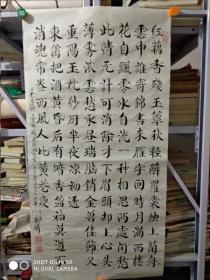 紅藕香殘玉簟秋輕解羅裳獨上蘭舟
雲中誰寄錦書來雁字回時月滿西樓
花自飄零水自流一種相思兩處閒愁
此情無計可消除才下眉頭却上心頭
薄霧濃雲愁永晝瑞腦銷金獸佳節又
重陽玉枕紗厨半夜凉初透
東籬把酒黄昏後有暗香盈袖莫道
消魂帘卷西風人比黄花瘦